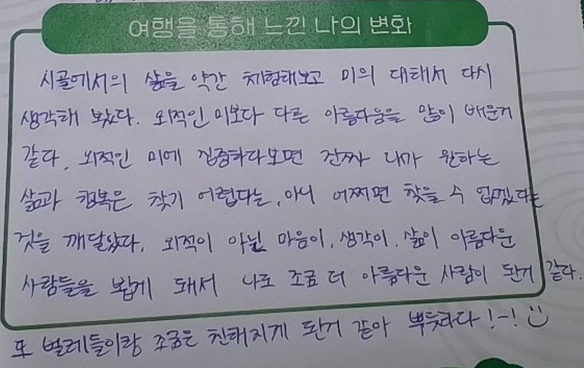 여행을 통해 느낀 나의 변화
시골에서의 삶을 약간 체험해보고 미의 대해서 다시
생각해 봤다. 외적인 미보다 다른 아름다움을 많이 배운거
같다. 외적인 미에 집중하다보면 진짜 내가 원하는
삶과 행복은 찾기 어렵다는, 아니 어쩌면 찾을 수 없겠다는
것을 깨달았다. 외적이 아닌 마음이, 생각이, 삶이 아름다운
사람들을 뵙게 돼서 나도 조금 더 아름다운 사람이 된거 같다.
또 벌레들이랑 조금은 친해지게 된거 같아 뿌듯하다!-!